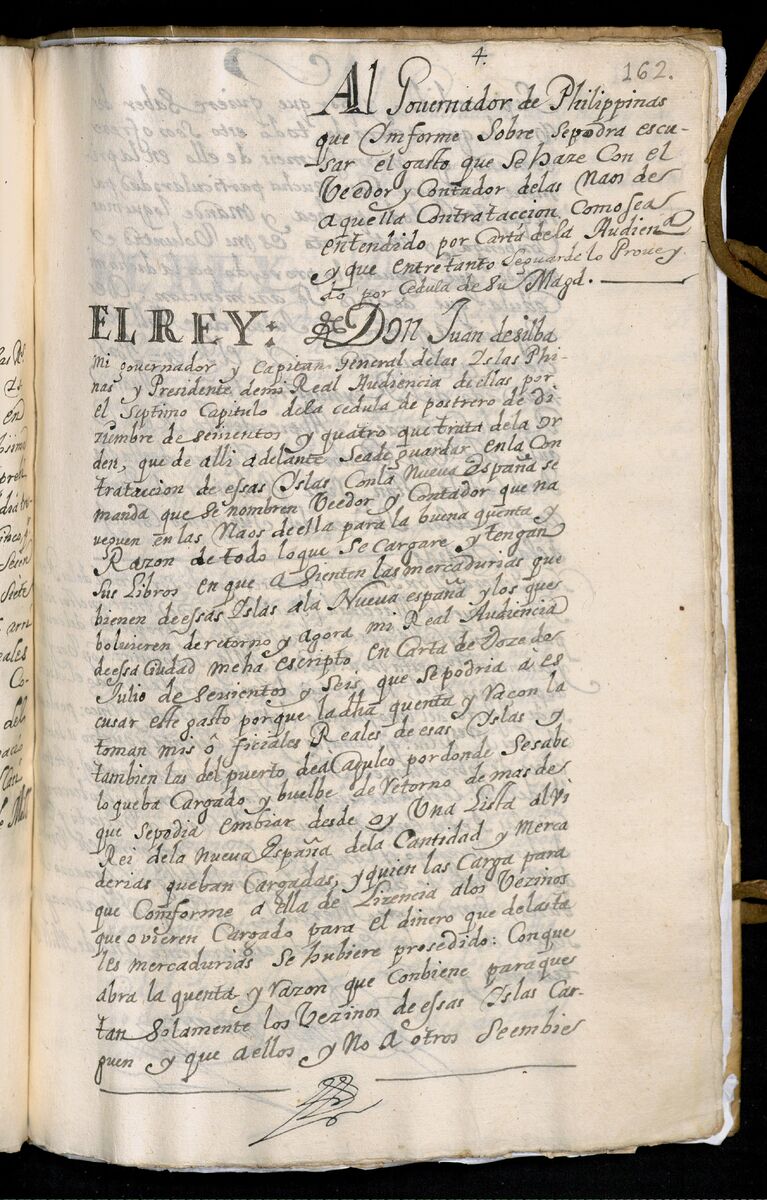 4.
162.
Al Governador de Philippinas
que Ymforme Sobre Sepodra escu-
sar el gasto que Se haze Con el
Veedor y Contador delas Naos de
aquella Contrataccion, Como sea
entendido por Carta de la Audiena
y que entretanto Seguarde lo Provey
do por Cedula de Su Magd.
EL REY: Don Juan desilba
mi governador y Capitan General delas Yslas Phi-
nas y Presidente demi Real Audiencia de ellas por
el Septimo Capitulo dela cedula de postrero de di
ziembre de seisientos y quatro que trata dela or
den, que de alli adelante Seade guardar enla Con
trataccion de essas Yslas Conla Nueva España se
manda que Se nombren Veedor y Contador que na
veguen en las Naos de ella para la buena quenta y
Razon de todo loque Se Cargare y tengan
Sus Libros en que asienten las mercadurias que
bienen de essas Yslas ala Nueva españa y los que
bolvieren de retorno y agora mi Real Audiencia
deessa Ciudad meha escripto en Carta de Doze de
Julio de Seisientos y Seis que Sepodria a es
cusar este gasto porque la dha quenta y racon la
toman mis ô ficiales Reales de esas Yslas y
tambien las del puerto deaCapulco pordonde Sesabe
lo queba Cargado y buelbe de retorno de mas de
que Sepodia embiar desde oy Una Lista al Vi
Rei dela Nueva España dela Cantidad y Merca
derias queban Cargadas, y quien las Carga para
que Comforme a ella de Lizencia alos Vezinos
que ovieren Cargado para el dinero que delasta
les mercadurias Se hubiere prosedido: Conque
abra la quenta y razon que Conbiene paraque
tan Solamente los Vezinos de essas Yslas Car-
guen y que aellos y No a otros Seembie